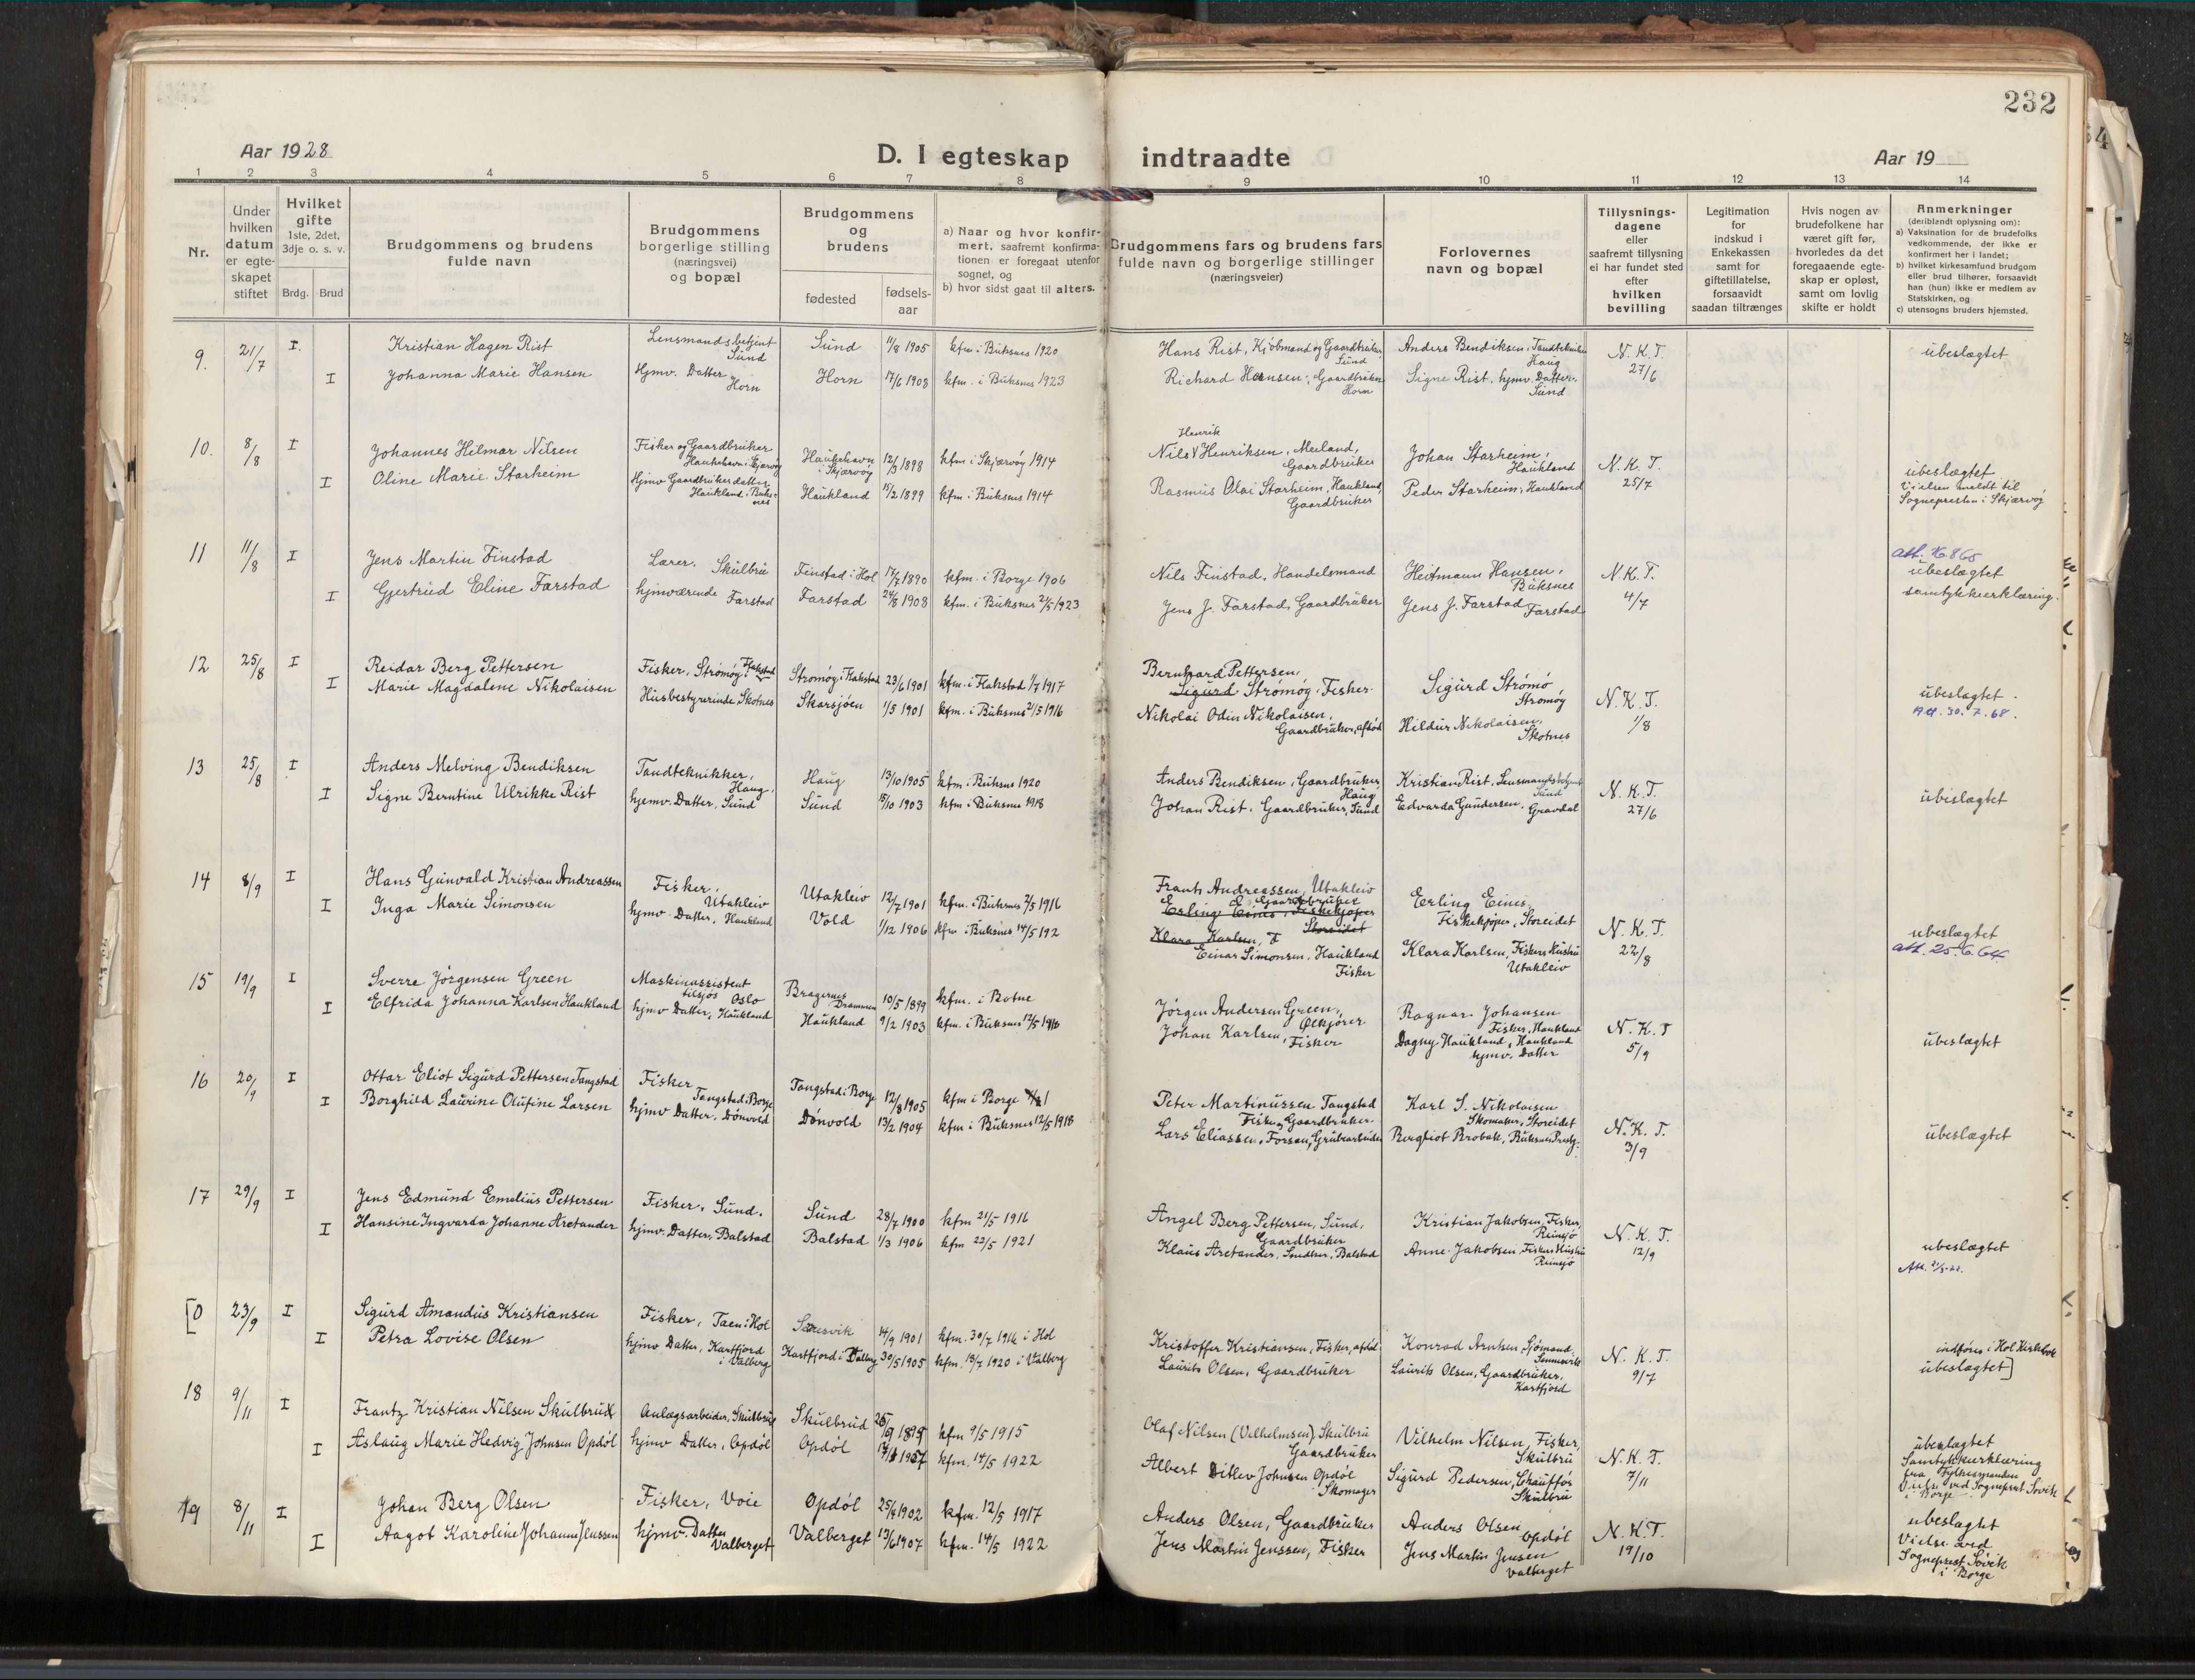 232
Aar 1928
D. I egteskap indtraadte
Aar 19
1 2 3 4 5 6 7 8 9 10 11 12 13 14
Nr.
Under hvilken datum er egteskapet stiftet
Hvilket gifte 1ste, 2det, 3dje o. s. v.
Brdg. Brud
Brudgommens og brudens fulde navn
Brudgommens borgerlige stilling (næringsvei) og bopæl
Brudgommens og brudens
fødested
fødsels-aar
a) Naar og hvor konfirmert, saafremt konfirmationen er foregaat utenfor sognet, og
b) hvor sidst gaat til alters.
Brudgommens fars og brudens fars fulde navn og borgerlige stillinger (næringsveier)
Forlovernes navn og bopæl
Tillysningsdagene eller saafremt tillysning ei har fundet sted efter hvilken bevilling
Legitimation for indskud i Enkekassen samt for giftetillatelse, forsaavidt saadan tiltrænges
Hvis nogen av brudefolkene har været gift før, hvorledes da det foregaaende egteskap er opløst, samt om lovlig skifte er holdt
Anmerkninger (deriblandt oplysning om):
a) Vaksination for de brudefolks vedkommende, der ikke er konfirmert her i landet;
b) hvilket kirkesamfund brudgom eller brud tilhører, forsaavidt han (hun) ikke er medlem av Statskirken, og
c) utensogns bruders hjemsted.
9. 21/7 I. Kristian Hagen Rist Lensmandsbetjent Sund Sund 11/8 1905 kfm i Buksnes 1920 Hans Rist, Kjøbmand og Gaardbruker Sund Anders Bendiksen, Tandtekniker Haug N. K. T. 27/6 ubeslægtet
I Johanna Marie Hansen Hjmv. Datter Horn Horn 17/6 1908 kfm. i Buksnes 1923 Richard Hansen, Gaardbruker Horn Signe Rist, hjmv. Datter, Sund
10. 8/8 I Johannes Hilmar Nilsen Fisker og Gaardbruker Haukehavn i Skjærvøy Haukehavn i Skjærvøy 12/3 1898 kfm i Skjærvøy 1914 Nils Henrik Henriksen, Meiland, Gaardbruker Johan Starheim, Haukland N. K. T. 25/7 ubeslægtet
I Oline Marie Starheim Hjmv Gaardbrukerdatter Haukland, Buksnes Haukland 15/2 1899 kfm. i Buksnes 1914 Rasmus Olai Starheim, Haukland, Gaardbruker Peder Starheim, Haukland Vielsen meldt til Sognepresten i Skjærvøy
11 11/8 I Jens Martin Finstad Lærer, Skulbru Finstad i Hol 17/7 1890 kfm. i Borge 1906 Nils Finstad, Handelsmand Heitmann Hansen, Buksnes N. K. T. 4/7 ubeslægtet
I Gjertrud Eline Farstad hjmværende Farstad Farstad 24/8 1908 kfm. i Buksnes 21/5 1923 Jens J. Farstad, Gaardbruker Jens J. Farstad Farstad samtykkeerklæring.
12 25/8 I Reidar Berg Pettersen Fisker, Strømøy i Flakstad Strømøy i Flakstad 23/6 1901 kfm. i Flakstad 1/7 1917 Bernhard Pettersen, Sigurd Strømøy, Fisker Sigurd Strømø Strømøy N. K. T. 1/8 ubeslægtet.
I Marie Magdalene Nikolaisen Husbestyrerinde, Skotnes Skarsjøen 1/5 1901 kfm. i Buksnes 21/5 1916 Nikolai Odin Nikolaisen, Gaardbruker, afdød Hildur Nikolaisen, Skotnes Att. 30.7.68.
13 25/8 I Anders Melving Bendiksen Tandteknikker, Haug, Haug 13/10 1905 kfm. Buksnes 1920 Anders Bendiksen, Gaardbruker, Haug Kristian Rist, Lensmandsbetjent Sund N. K. T. 27/6 ubeslægtet
I Signe Berntine Ulrikke Rist hjemv. Datter, Sund Sund 15/10 1903 kfm. i Buksnes 1918 Johan Rist, Gaardbruker, Sund Edvarda Gundersen, Gravdal
14 8/9 I Hans Gunvald Kristian Andreassen Fisker, Utakleiv Utakleiv 12/7 1901 kfm. i Buksnes 2/5 1916 Frants Andreassen, Utakleiv Gaardbruker Erling Eines, Fiskekjøper, Storeidet Erling Eines, Fiskekjøper, Storeidet N. K. T. 22/8 ubeslægtet
I Inga Marie Simonsen hjmv. Datter, Haukland Vold 1/12 1906 kfm i Buksnes 14/5 192 Klara Karlsen, F Einar Simonsen, Haukland Fisker Klara Karlsen, Fiskers Hustru Utakleiv att. 25.6.64
15 19/9 I Sverre Jørgensen Green Maskinassistent tilsjøs Oslo Bragernes Drammen 10/5 1899 kfm. i Botne Jørgen Andersen Green, Ølkjører Ragnar Johansen Fisker, Haukland N. K. T 5/9 ubeslægtet
I Elfrida Johanna Karlsen Haukland hjmv Datter, Haukland Haukland 9/2 1903 kfm. i Buksnes 12/5 1918 Johan Karlsen, Fisker Dagny Haukland, Haukland hjmv. Datter
16 20/9 I Ottar Eliot Sigurd Pettersen Tangstad Fisker Tangstad i Borge Tangstad i Borge 12/8 1905 kfm i Borge Peter Martinussen Tangstad Fisker, Gaardbruker Karl S. Nikolaisen Skomaker, Storeidet N. K. T. 3/9 ubeslægtet
I Borghild Laurine Olufine Larsen hjmv Datter, Dønvold Dønvold 13/2 1904 kfm i Buksnes 12/5 1918 Lars Eliassen, Forsan, Grubearbeider Bergliot Brobak, Buksnes Prestg.
17 29/9 I Jens Edmund Emelius Pettersen Fisker, Sund. Sund 28/7 1900 kfm 21/5 1916 Angel Berg Pettersen, Sund, Gaardbruker Kristian Jakobsen, Fisker, Reinsjø N. K. T. 12/9 ubeslægtet
I Hansine Ingvarda Johanne Aretander hjmv. Datter, Balstad Balstad 1/3 1906 kfm 22/5 1921 Klaus Aretander, Snedker, Balstad Anne Jakobsen, Fiskers Hustru Reinsjø
[0 23/9 I Sigurd Amandus Kristiansen Fisker, Taen i Hol 14/9 1901 kfm. 30/7 1916 i Hol Kristoffer Kristiansen, Fisker, afdød Konrad Arntsen, Sjømand, N. K. T. 9/7 indføres i Hol Kirkebok
I Petra Lovise Olsen hjmv Datter, Kartfjord i Valberg Kartfjord i Valberg 30/5 1905 kfm. 18/7 1920 i Valberg Laurits Olsen, Gaardbruker Laurits Olsen, Gaardbruker, Kartfjord ubeslægtet]
18 9/11 I Frantz Kristian Nilsen Skulbrud Anlægsarbeider, Skulbru Skulbrud kfm 9/5 1915 Olaf Nilsen (Vilhelmsen), Skulbru Gaardbruker Vilhelm Nilsen, Fisker, Skulbru N. K. T. 7/11 ubeslægtet
I Aslaug Marie Hedvig Johnsen Opdøl hjmv Datter, Opdøl Opdøl kfm. 14/5 1922 Albert Ditlev Johnsen Opdøl Skomager Sigurd Pedersen, Chauffør Skulbru Samtykkeerklæring fra Fylkesmanden Vielse ved Sogneprest Søvik i Borge
19 8/11 I Johan Berg Olsen Fisker, Voie Opdøl 25/4 1902 kfm. 12/5 1917 Anders Olsen, Gaardbruker Anders Olsen Opdøl N. K. T. 19/10 ubeslægtet
I Aagot Karoline Johanne Jenssen hjmv. Datter Valberget Valberget 13/6 1907 kfm. 14/5 1922 Jens Martin Jenssen, Fisker Jens Martin Jensen Valberget Vielse ved Sogneprest Søvik i Borge